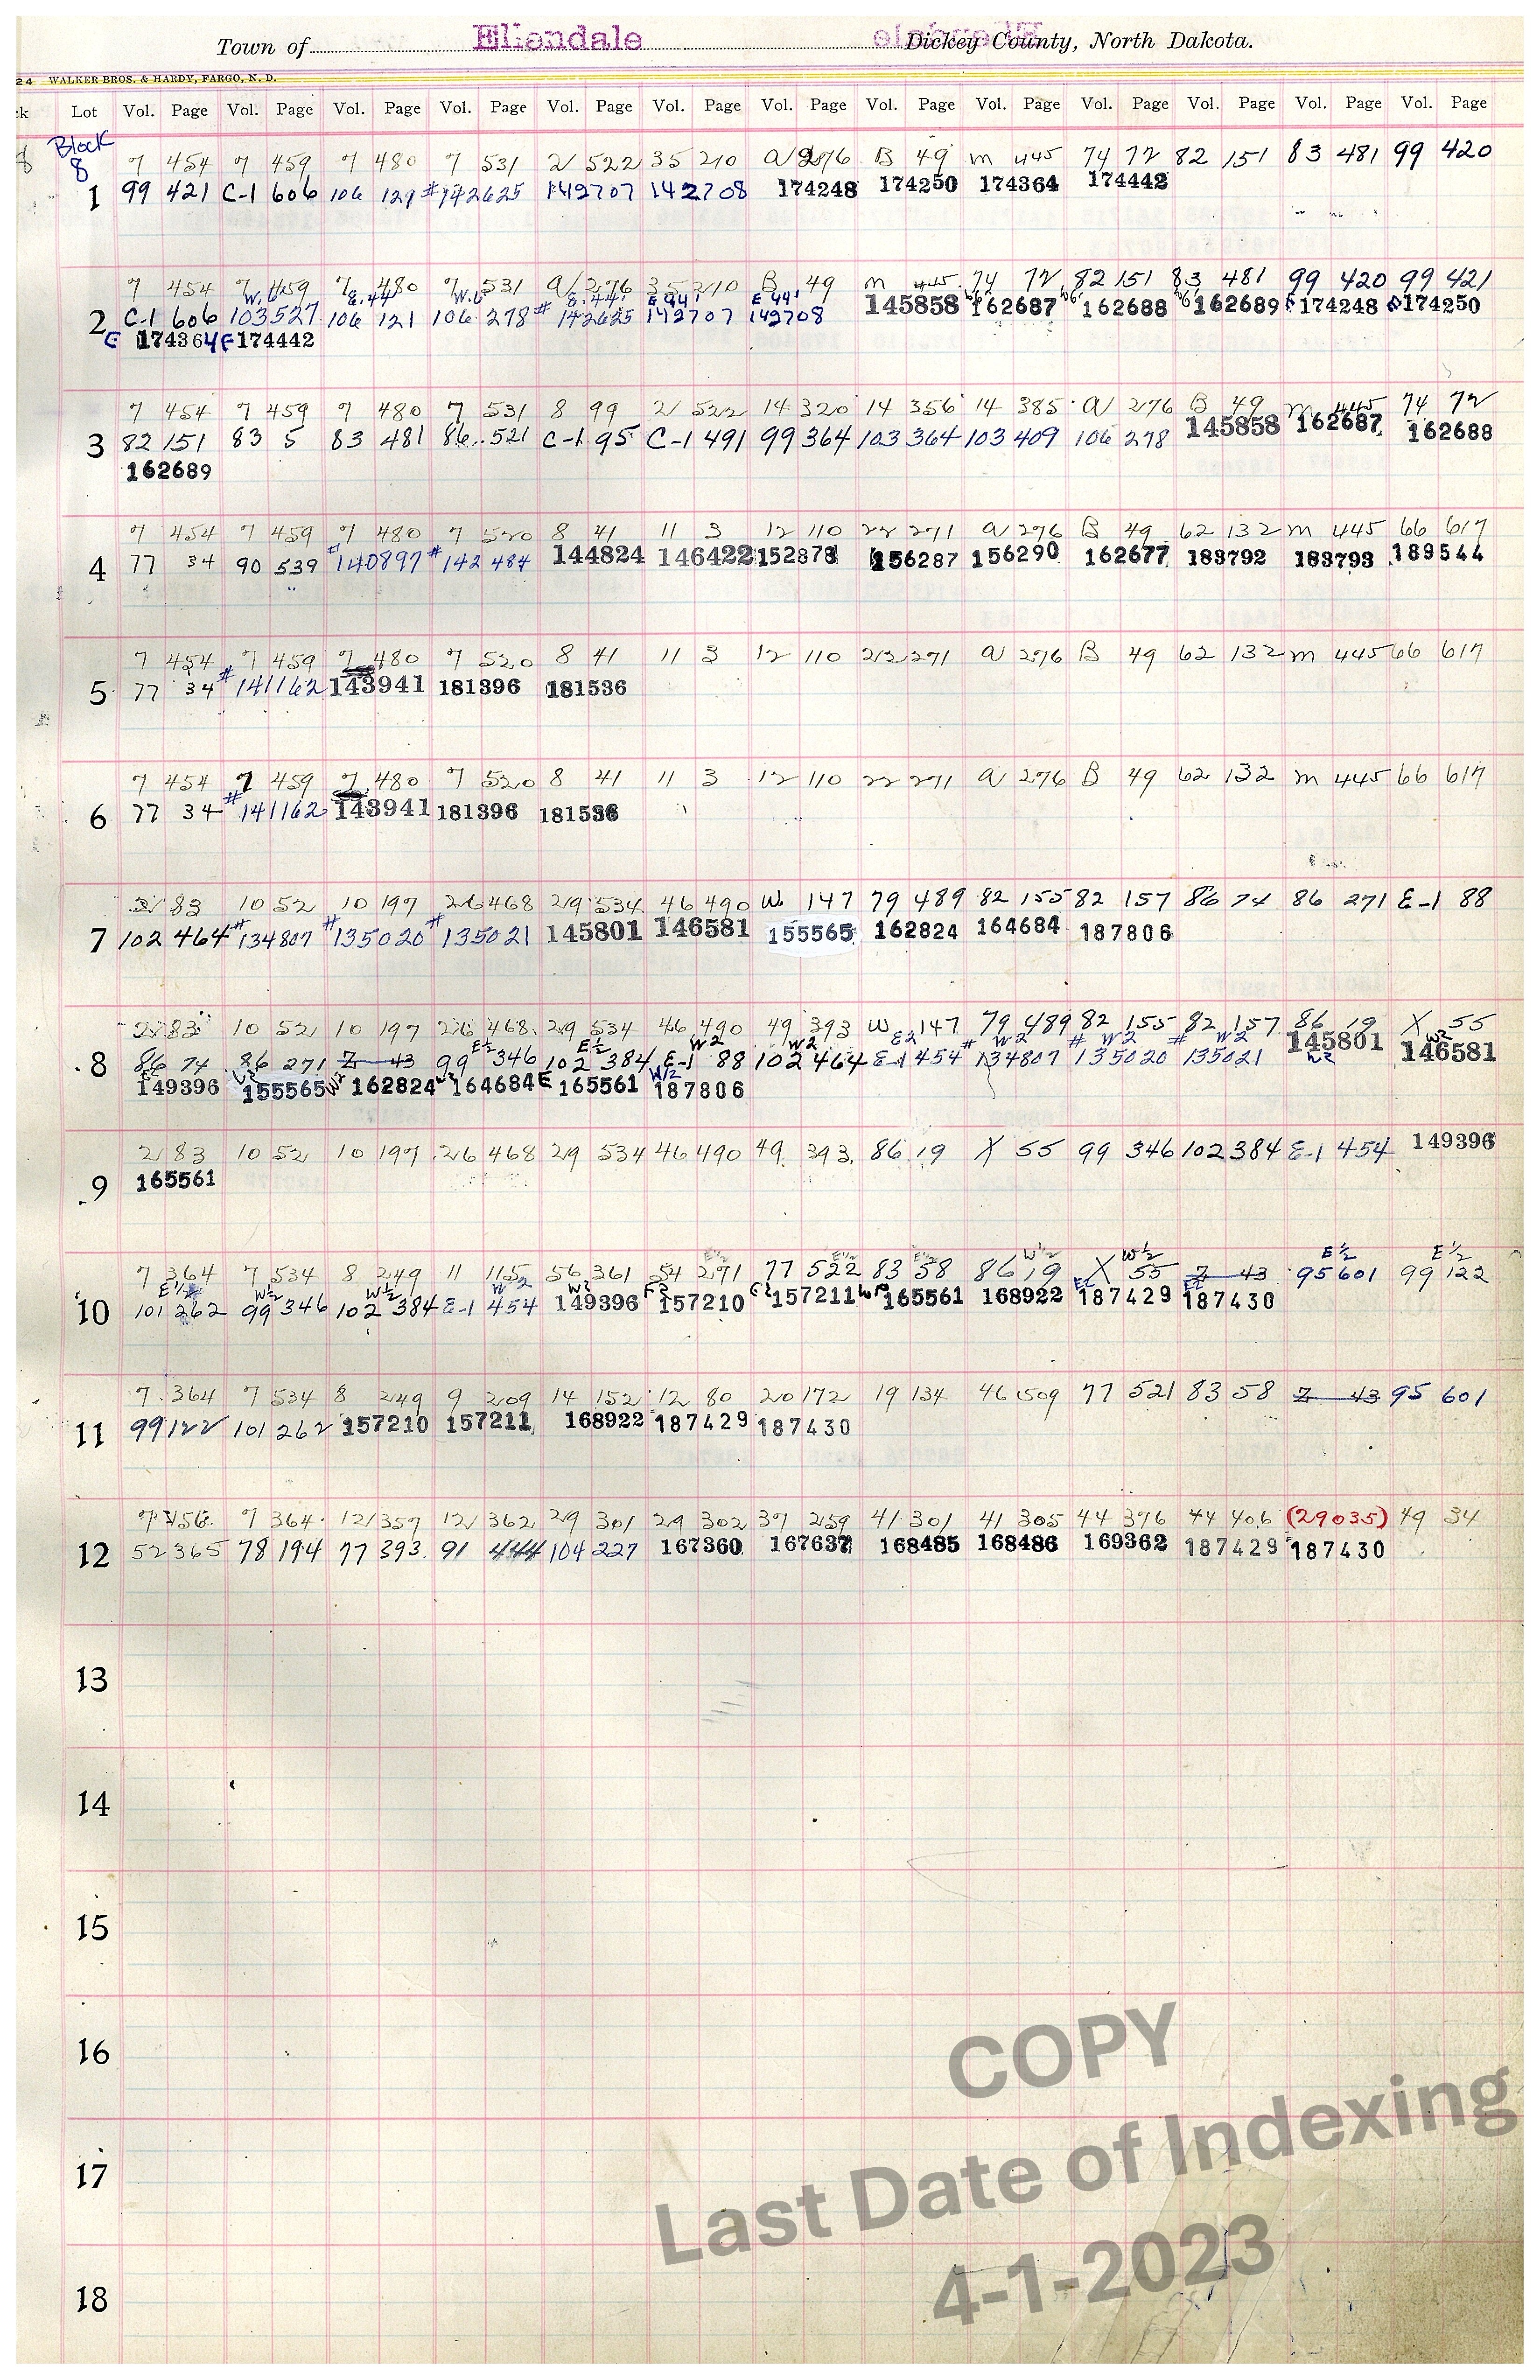 Town of Ellendale Dickey County, North Dakota.
24 WALKER BROS. & HARDY, FARGO, N. D.
Lot Vol. Page Vol. Page Vol. Page Vol. Page Vol. Page Vol. Page Vol. Page Vol. Page Vol. Page Vol. Page Vol. Page Vol. Page Vol. Page
Block
8
7 454 7 459 7 480 7 531 2 522 35 210 a 276 B 49 m 445 74 72 82 151 83 481 99 420
1 99 421 C-1 606 106 121 #142625 142707 142708 174248 174250 174364 174442
7 454 7 459 7 480 7 531 a 276 35 210 B 49 m 445 74 72 82 151 83 481 99 420 99 421
W.6 E.44 W.6 E.44' E 44' E 44' W6' W6' W6'
2 C-1 606 103 527 106 121 106 278 # 142625 142707 142708 145858 162687 162688 162689 174248 174250
E 174364 E 174442
7 454 7 459 7 480 7 531 8 99 21 522 14 320 14 356 14 385 a 276 B 49 m 445 74 72
3 82 151 83 5 83 481 86 521 C-1 95 C-1 491 99 364 103 364 103 409 106 278 145858 162687 162688
162689
7 454 7 459 7 480 7 520 8 41 11 3 12 110 22 271 a 276 B 49 62 132 m 445 66 617
4 77 34 90 539 #140897 #142484 144824 146422 152878 156287 156290 162677 183792 183793 189544
7 454 7 459 7 480 7 520 8 41 11 3 12 110 22 271 a 276 B 49 62 132 m 445 66 617
5 77 34 #141162 143941 181396 181536
7 454 7 459 7 480 7 520 8 41 11 3 12 110 22 271 a 276 B 49 62 132 m 445 66 617
6 77 34 #141162 143941 181396 181536
21 83 10 52 10 197 26 468 29 534 46 490 W 147 79 489 82 155 82 157 86 74 86 271 E-1 88
7 102 464 #134807 #135020 #135021 145801 146581 155565 162824 164684 187806
21 83 10 52 10 197 26 468 29 534 46 490 49 393 W 147 79 489 82 155 82 157 86 19 X 55
E½ E½ W2 W2 E2 W2 W2 W2 W2
8 86 74 86 271 Z 43 99 346 102 384 E-1 88 102 464 E-1 454 # 134807 # 135020 # 135021 145801 146581
149396 155565 W2 162824 W2 164684 E 165561 W½ 187806
21 83 10 52 10 197 26 468 29 534 46 490 49 393 86 19 X 55 99 346 102 384 E-1 454 149396
9 165561
E½ E½ E½ W½ W½ E½ E½
7 364 7 534 8 249 11 115 56 361 54 271 77 522 83 58 86 19 X 55 Z 43 95 601 99 122
E½ W½ W½ W2 W2
10 101 262 99 346 102 384 E-1 454 149396 157210 157211 165561 168922 187429 187430
7 364 7 534 8 249 9 209 14 152 12 80 20 172 19 134 46 509 77 521 83 58 Z 43 95 601
11 99 122 101 262 157210 157211 168922 187429 187430
7 456 7 364 12 357 12 362 29 301 29 302 37 259 41 301 41 305 44 376 44 406 (29035) 49 34
12 52 365 78 194 77 393 91 444 104 227 167360 167637 168485 168486 169362 187429 187430
13
14
15
16
17
18
COPY
Last Date of Indexing
4-1-2023